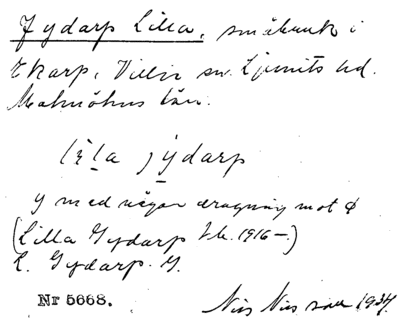 Jydarp Lilla, småbruk i
Ekarp, Villie sn. Ljunits hd.
Malmöhus län.
lìla jýdarp
y med någon dragning mot ø
(Lilla Gydarp Jb. 1916 –.)
L. Gydarp. G.
Nr 5668.
Nils Nilsson 1934.